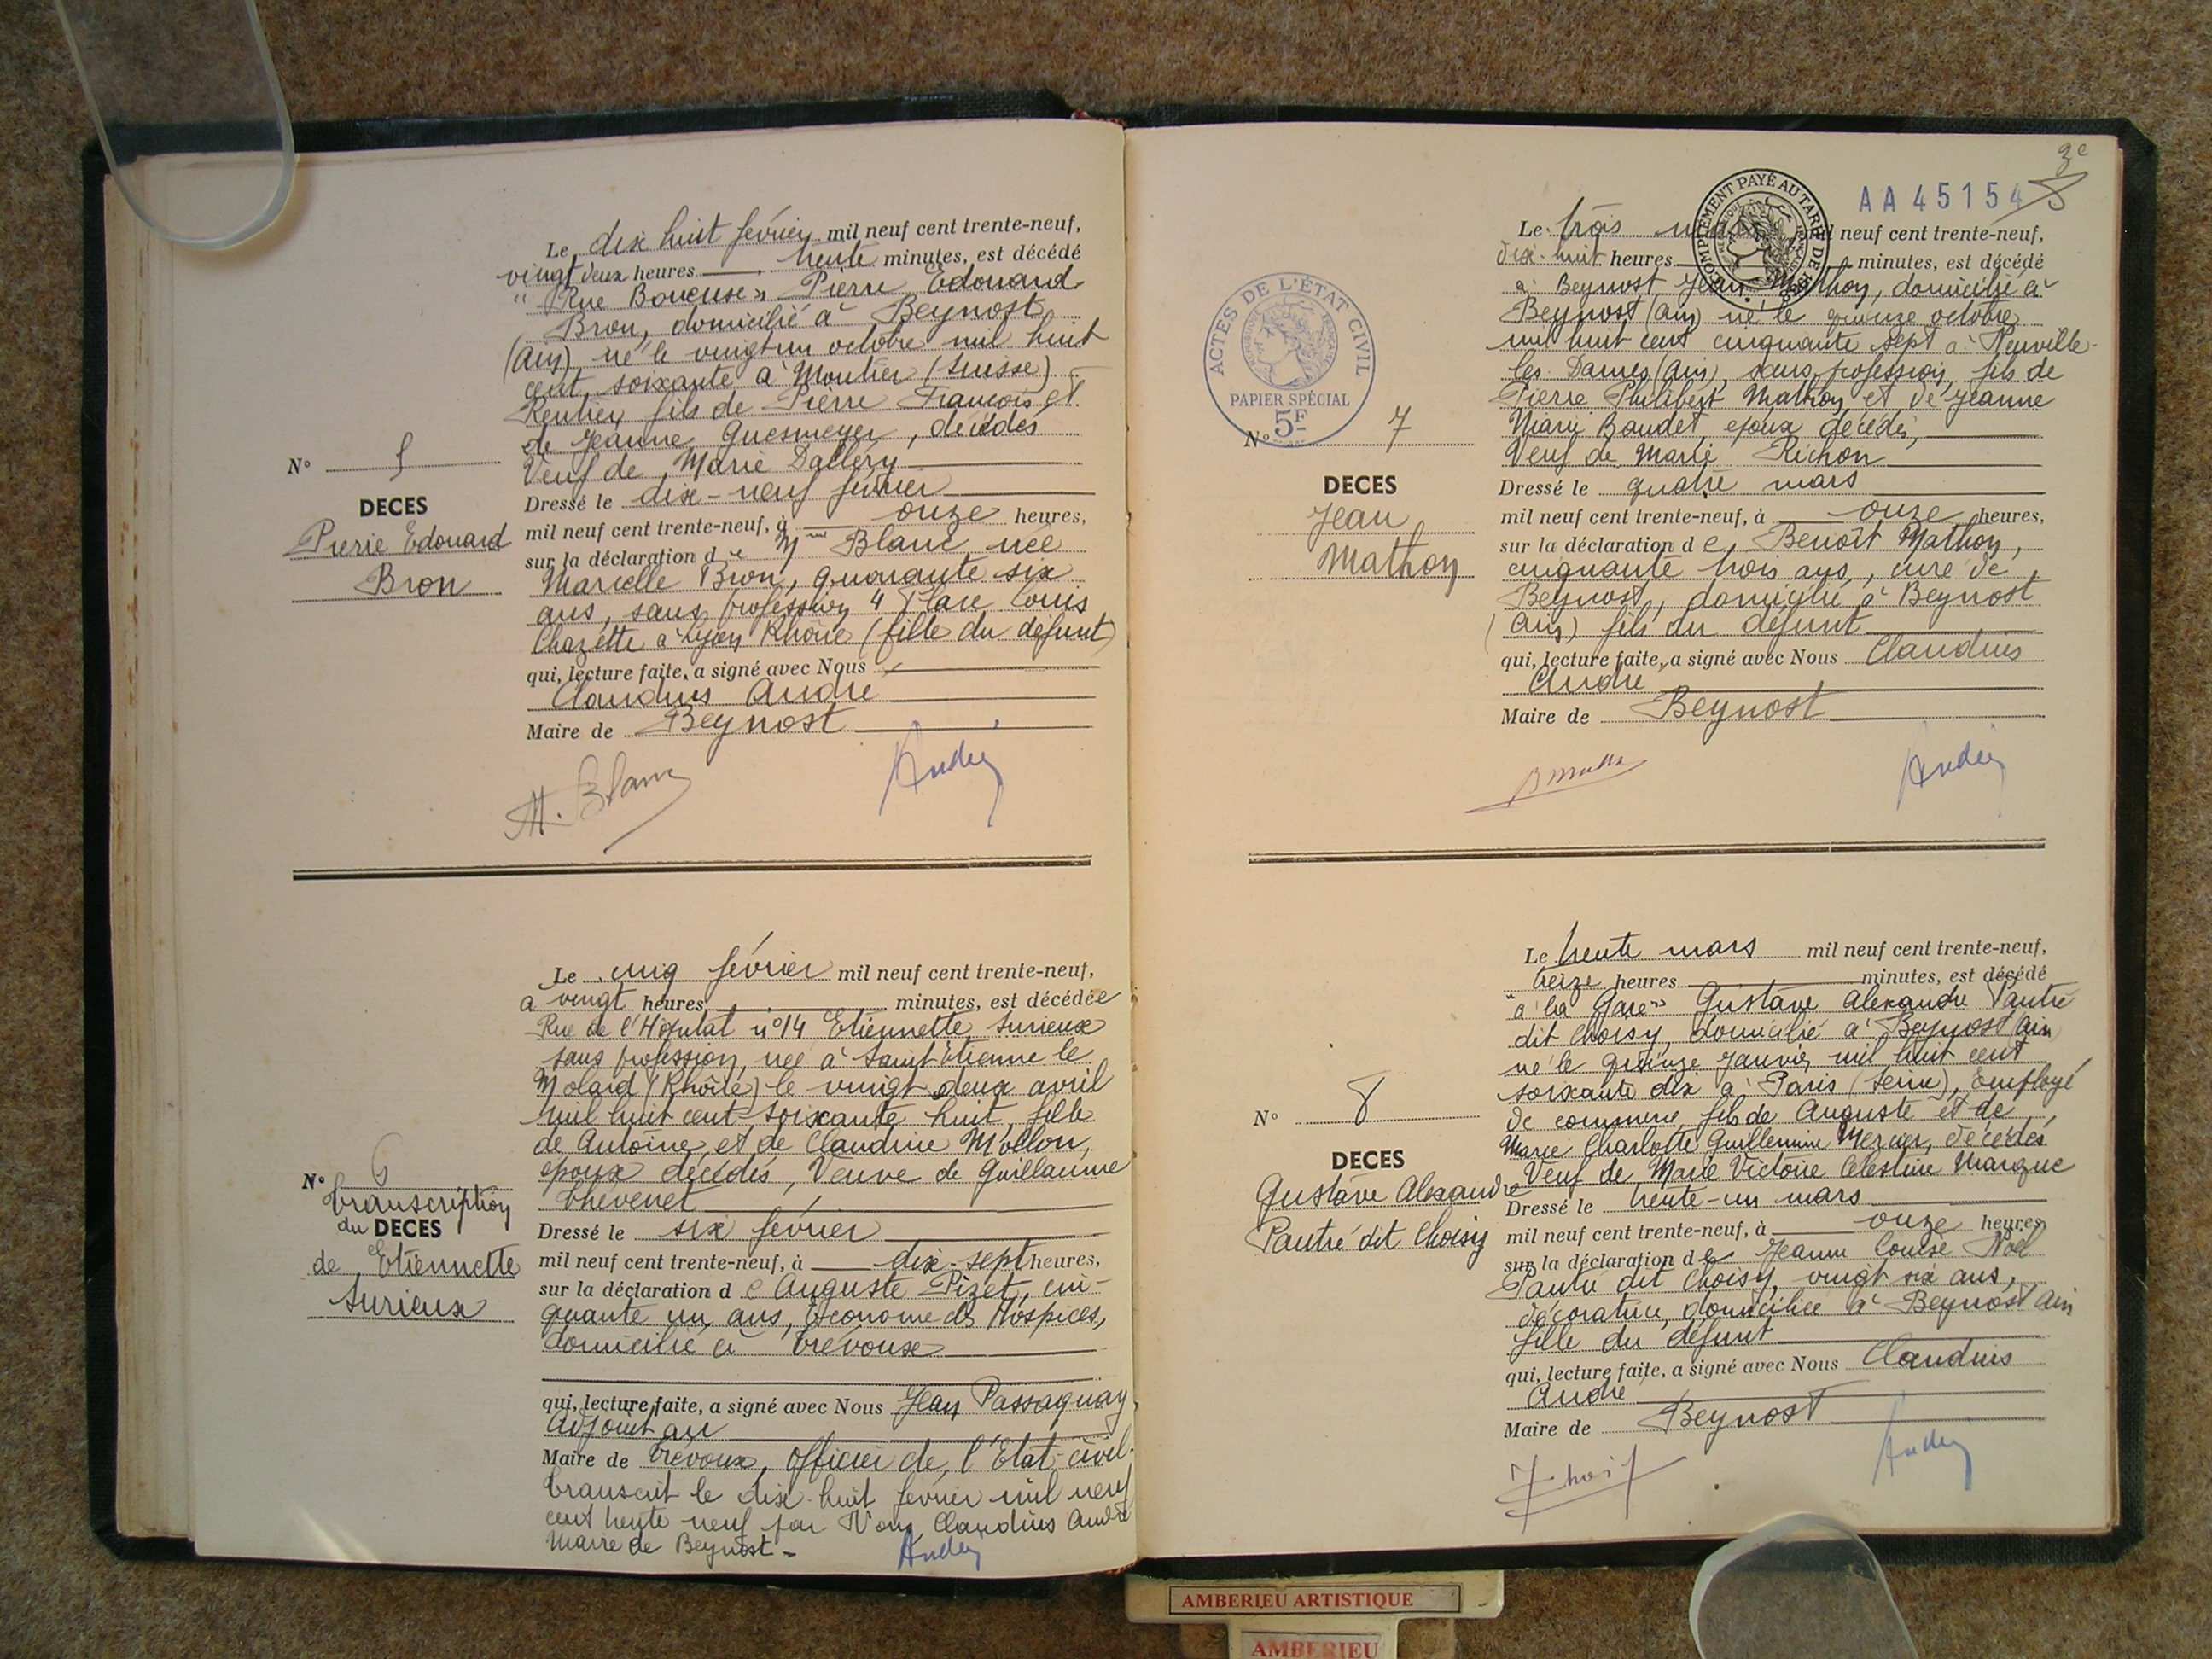 Le dix huit février mil neuf cent trente-neuf,
vingt deux heures trente minutes, est décédé
"Rue Boucuse" Pierre Edouard
Bron, domicilié à Beynost
(Ain) né le vingt un octobre mil huit
cent soixante à Moutier (Suisse)
Rentier, fils de Pierre François et
de Jeanne Guesmeyer, décédés
Veuf de Marie Dallery
N° 5
DECES
Pierre Edouard
Bron
Dressé le dix-neuf février
mil neuf cent trente-neuf, à onze heures,
sur la déclaration de Mme Blanc née
Marcelle Bron, quarante six
ans, sans profession 4 Place Louis
Chazette à Lyon Rhône (fille du défunt)
qui, lecture faite, a signé avec Nous
Claudius André
Maire de Beynost
M. Blanc
André
Le cinq février mil neuf cent trente-neuf,
à vingt heures minutes, est décédée
Rue de l'Hôpital n°14 Etiennette Surieux
sans profession, née à Saint Etienne le
Molard (Rhône) le vingt deux avril
mil huit cent soixante huit, fille
de Antoine et de Claudine Mollon,
époux décédés, Veuve de Guillaume
Thevenet
N° 6
transcription
du DECES
de Etiennette
Surieux
Dressé le six février
mil neuf cent trente-neuf, à dix-sept heures,
sur la déclaration de Auguste Pizet, cin-
quante un ans, Econome des Hospices,
domicilié à Trévoux
qui, lecture faite, a signé avec Nous Jean Passaquay
Adjoint au
Maire de Trévoux, Officier de l'Etat-civil.
Transcrit le dix-huit février mil neuf
cent trente neuf par Nous Claudius André
Maire de Beynost -
André
3e
AA 45154
COMPLÉMENT PAYÉ AU TARIF DE
ACTES DE L'ÉTAT CIVIL
RÉPUBLIQUE FRANÇAISE
PAPIER SPÉCIAL
5F
Le trois mars mil neuf cent trente-neuf,
dix-huit heures minutes, est décédé
à Beynost Jean Mathon, domicilié à
Beynost (Ain) né le quinze octobre
mil huit cent cinquante sept à Neuville-
les-Dames (Ain), sans profession, fils de
Pierre Philibert Mathon et de Jeanne
Marie Baudet, époux décédés,
Veuf de Marie Richon
N° 7
DECES
Jean
Mathon
Dressé le quatre mars
mil neuf cent trente-neuf, à onze heures,
sur la déclaration de Benoît Mathon,
cinquante trois ans, curé de
Beynost, domicilié à Beynost
(Ain) fils du défunt
qui, lecture faite, a signé avec Nous Claudius
André
Maire de Beynost
André
Le trente mars mil neuf cent trente-neuf,
treize heures minutes, est décédé
"à la Gare" Gustave Alexandre Pautré
dit Choisy, domicilié à Beynost Ain
né le quinze janvier mil huit cent
soixante dix à Paris (Seine), Employé
de commerce, fils de Auguste et de
Marie Charlotte Guillemine Mercier, décédés
Veuf de Marie Victoire Célestine Marque
N° 8
DECES
Gustave Alexandre
Pautré dit Choisy
Dressé le trente-un mars
mil neuf cent trente-neuf, à onze heures
sur la déclaration de Jeanne Louise Noël
Pautré dit Choisy, vingt six ans,
décoratrice, domiciliée à Beynost Ain
fille du défunt
qui, lecture faite, a signé avec Nous Claudius
André
Maire de Beynost
André
AMBERIEU ARTISTIQUE
AMBERIEU